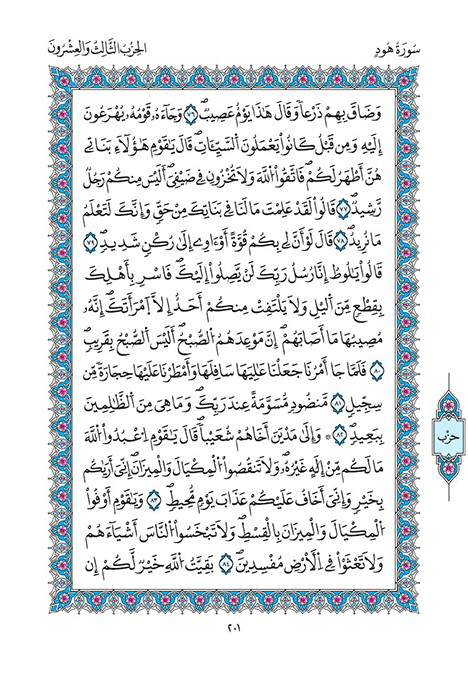 سُورَةُ هُودٍ
الحِزْبُ الثَّالِثُ وَالعِشْرُونَ
وَضَاقَ بِهِمْ ذَرْعاً وَقَالَ هَٰذَا يَوْمٌ عَصِيبٌ ٧٦ وَجَآءَهُۥ قَوْمُهُۥ يُهْرَعُونَ
إِلَيْهِ وَمِن قَبْلُ كَانُواْ يَعْمَلُونَ اَلسَّيِّـَٔاتِ قَالَ يَٰقَوْمِ هَٰٓؤُلَآءِ بَنَاتِے
هُنَّ أَطْهَرُ لَكُمْ فَاتَّقُواْ اُللَّهَ وَلَا تُخْزُونِ فِے ضَيْفِيَ أَلَيْسَ مِنكُمْ رَجُلٌ
رَّشِيدٌ ٧٧ قَالُواْ لَقَدْ عَلِمْتَ مَا لَنَا فِے بَنَاتِكَ مِنْ حَقٍّ وَإِنَّكَ لَتَعْلَمُ
مَا نُرِيدُ ٧٨ قَالَ لَوْ أَنَّ لِے بِكُمْ قُوَّةً أَوْ ءَاوِے إِلَىٰ رُكْنٍ شَدِيدٍ ٧٩
قَالُواْ يَٰلُوطُ إِنَّا رُسُلُ رَبِّكَ لَنْ يَّصِلُوٓاْ إِلَيْكَ فَاسْرِ بِأَهْلِكَ
بِقِطْعٍ مِّنَ اَلَيْلِ وَلَا يَلْتَفِتْ مِنكُمْ أَحَدٌ إِلَّا اَمْرَأَتَكَ إِنَّهُۥ
مُصِيبُهَا مَا أَصَابَهُمْ إِنَّ مَوْعِدَهُمُ اُلصُّبْحُ أَلَيْسَ اَلصُّبْحُ بِقَرِيبٍ
٨٠ فَلَمَّا جَا أَمْرُنَا جَعَلْنَا عَٰلِيَهَا سَافِلَهَا وَأَمْطَرْنَا عَلَيْهَا حِجَارَةً مِّن
سِجِّيلٍ ٨١ مَّنضُودٍ مُّسَوَّمَةً عِندَ رَبِّكَ وَمَا هِيَ مِنَ اَلظَّٰلِمِينَ
بِبَعِيدٍ ٨٢ ۞ وَإِلَىٰ مَدْيَنَ أَخَاهُمْ شُعَيْباً قَالَ يَٰقَوْمِ اِعْبُدُواْ اُللَّهَ
مَا لَكُم مِّنِ إِلَٰهٍ غَيْرُهُۥ وَلَا تَنقُصُواْ اُلْمِكْيَالَ وَالْمِيزَانَ إِنِّيَ أَر۪يٰكُم
بِخَيْرٍ وَإِنِّيَ أَخَافُ عَلَيْكُمْ عَذَابَ يَوْمٍ مُّحِيطٍ ٨٣ وَيَٰقَوْمِ أَوْفُواْ
اُلْمِكْيَالَ وَالْمِيزَانَ بِالْقِسْطِ وَلَا تَبْخَسُواْ اُلنَّاسَ أَشْيَآءَهُمْ
وَلَا تَعْثَوْاْ فِے اِلْأَرْضِ مُفْسِدِينَ ٨٤ بَقِيَّتُ اُللَّهِ خَيْرٌ لَّكُمْ إِن
حِزْب
٢٠١